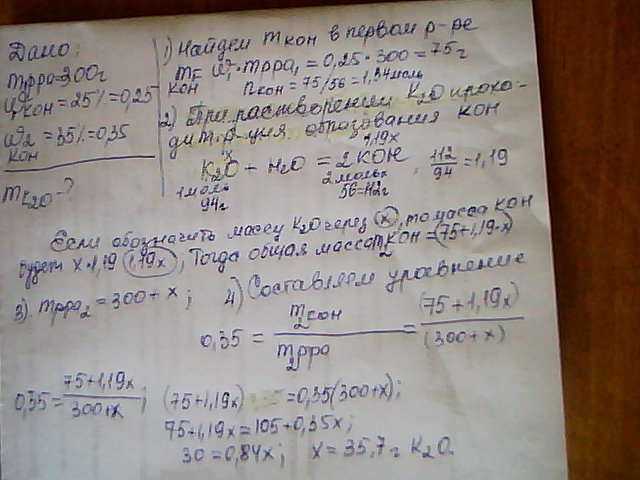 Дано:
mрра=300г
ω₁кон=25%=0,25
ω₂кон=35%=0,35
mK₂O-?
1) Найдем mкон в первом р-ре
mкон=ω₁·mрра₁=0,25·300=75г
nкон=75/56=1,34моль
2) При растворении K₂O происхо-
дит р-ция образования кон
x 1,19x
K₂O + H₂O = 2KOH; 112/94=1,19
1моль 2моль·
94г 56=112г
Если обозначить массу K₂O через x, то масса кон
будет x·1,19 (1,19x), Тогда общая масса m₂KOH=(75+1,19·x)
3). mрра₂=300+x; 4) Составляем уравнение
0,35 = m₂кон/m₂рра = (75+1,19x)/(300+x)
0,35=75+1,19x/300+x; (75+1,19x) =0,35(300+x);
75+1,19x=105+0,35x;
30=0,84x; x=35,7г K₂O.